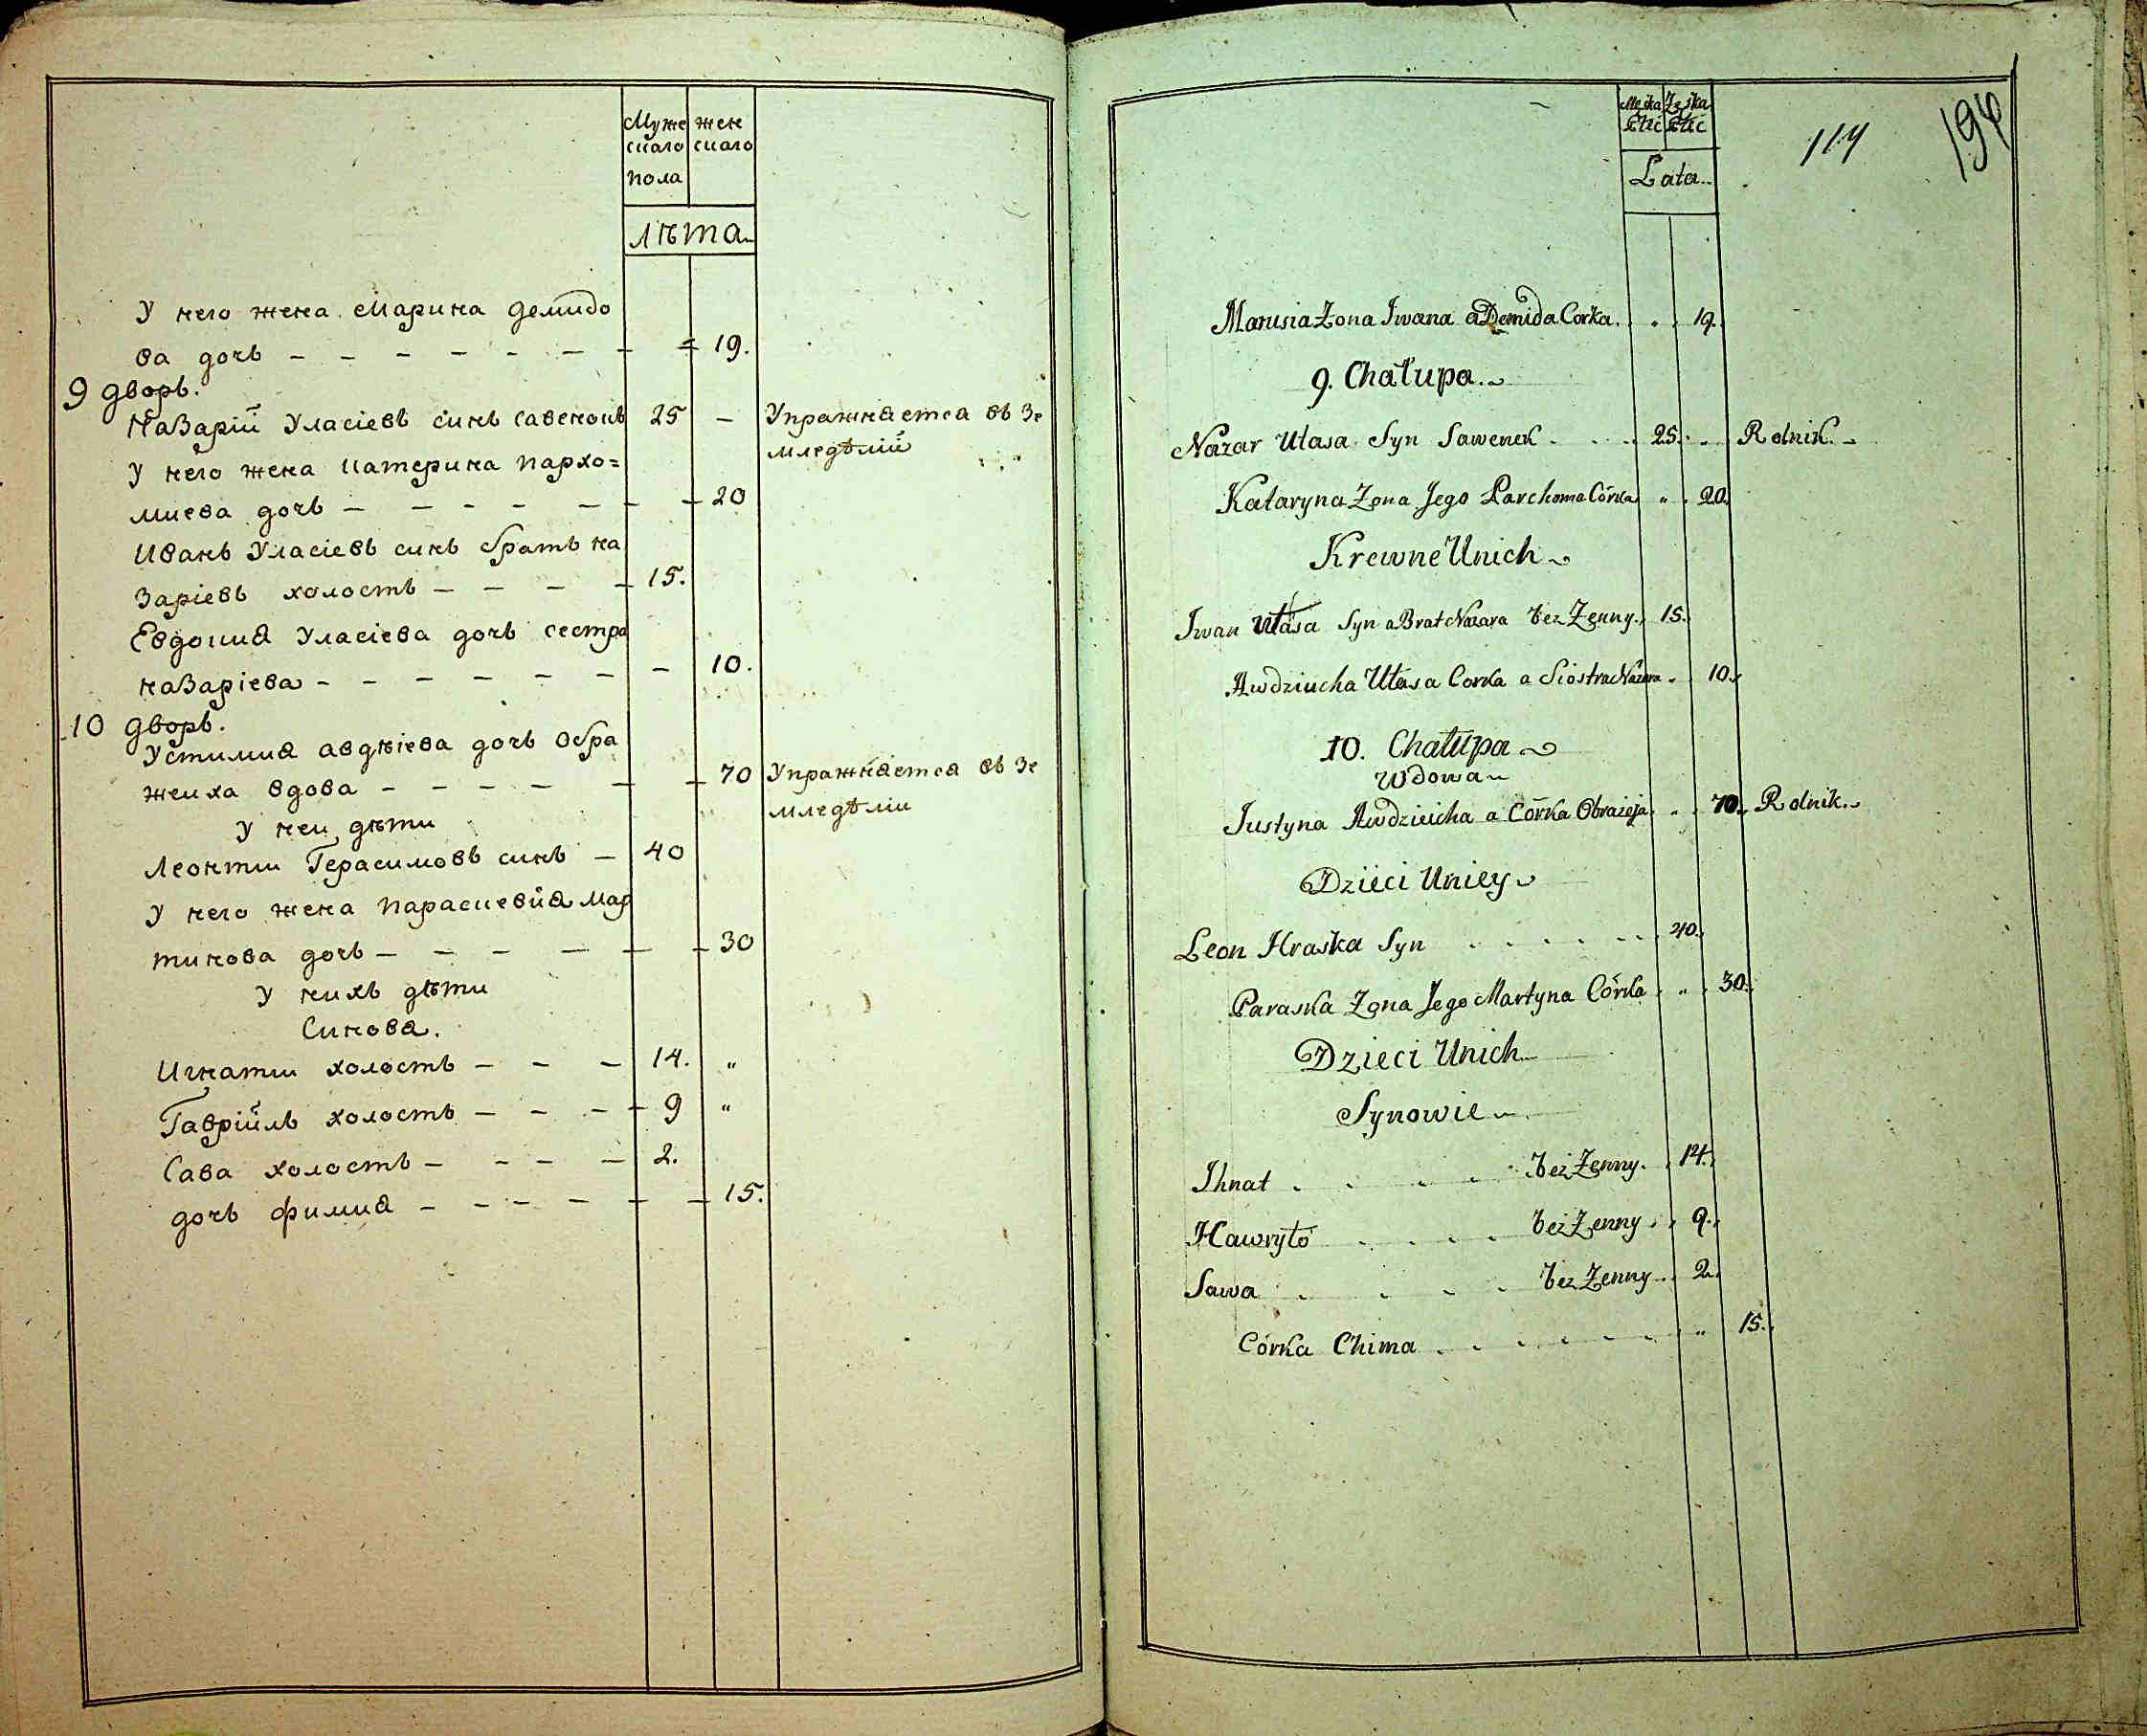 Муже жен
скаго скаго
пола
лѣта
У него жена Марина демидо
ва дочь 19.
9 дворъ.
Назарій Уласіевъ синъ савенокъ 25 — Упражняется въ зе
мледѣліи
У него жена катерина пархо=
миева дочь 20
Иванъ Уласіевъ синъ братъ на
заріевъ холостъ 15.
Евдокия Уласіева дочь сестра
назаріева — 10.
10 дворъ.
Устимия авдѣіева дочь обра
жеиха вдова 70 Упражняется въ зе
мледѣліи
У неи дѣти
Леонтии Герасимовъ синъ — 40
У него жена параскевия мар
тинова дочь 30
У нихъ дѣти
Синова.
Игнатии холостъ 14. "
Гавріилъ холостъ 9 "
Сава холостъ 2.
дочь фимия 15.
Męska Zęska
Płić Płić
Lata
114 194
Marusia Żona Iwana a Demida Corka. " 19.
9. Chałupa.
Nazar Ułasa Syn Sawenek 25. Rolnik.
Kataryna Żona Jego Parchoma Córka " 20.
Krewne Unich
Iwan Ułasa Syn a Brat Nazara bez Żenny. 15.
Awdziucha Ułasa Corka a Siostra Nazara 10.
10. Chałupa
Wdowa
Justyna Awdzieicha a Córka Obrażeja " 70. Rolnik.
Dzieci Uniey
Leon Hraska Syn 40.
Paraska Żona Jego Martyna Córka " 30.
Dzieci Unich
Synowie
Ihnat bez Żenny. 14.
Hawryło bez Żenny 9.
Sawa bez Żenny 2.
Córka Chima " 15.